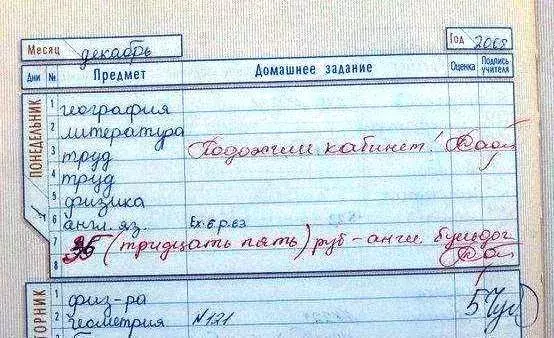 Месяц декабрь Год 2008
Дни № Предмет Домашнее задание Оценка Подпись учителя
ПОНЕДЕЛЬНИК
1 география
2 литература
3 труд Подожгли кабинет!
4 труд
5 физика
6 англ. яз. Ex. 6 p. 63
7 35 (тридцать пять) руб - англ. бульдог
8
ТОРНИК
1 физ-ра 5
2 геометрия №121